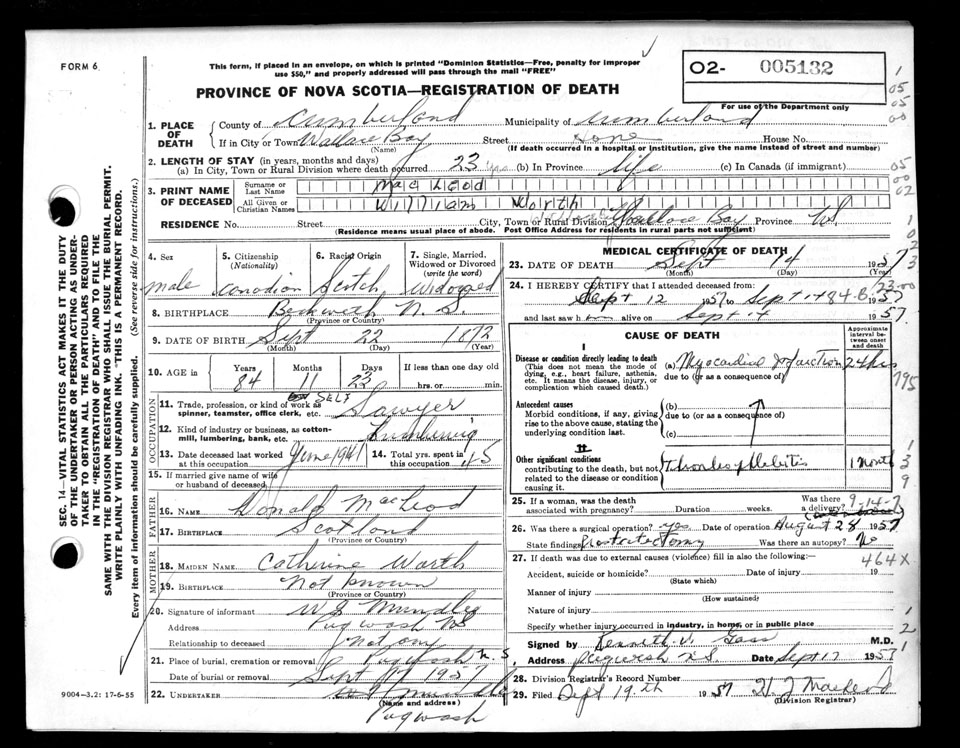 FORM 6.
This form, if placed in an envelope, on which is printed "Dominion Statistics—Free, penalty for improper
use $50," and properly addressed will pass through the mail "FREE"
O2- 005132
For use of the Department only
PROVINCE OF NOVA SCOTIA—REGISTRATION OF DEATH
1. PLACE OF DEATH
County of Cumberland Municipality of Cumberland
If in City or Town Wallace Bay Street House No.
(Name) (If death occurred in a hospital or institution, give the name instead of street and number)
2. LENGTH OF STAY (in years, months and days)
(a) In City, Town or Rural Division where death occurred 23 yrs (b) In Province life (c) In Canada (if immigrant)
3. PRINT NAME OF DECEASED
Surname or Last Name MacLeod
All Given or Christian Names William Worth
RESIDENCE No. Street City, Town or Rural Division Wallace Bay Province N.S.
(Residence means usual place of abode. Post Office Address for residents in rural parts not sufficient)
4. Sex male
5. Citizenship (Nationality) Canadian
6. Racial Origin Scotch
7. Single, Married, Widowed or Divorced (write the word) Widowed
8. BIRTHPLACE Beckwith N.S.
(Province or Country)
9. DATE OF BIRTH Sept 22 1872
(Month) (Day) (Year)
10. AGE in Years Months Days If less than one day old
84 11 23 hrs. or min.
OCCUPATION
11. Trade, profession, or kind of work as spinner, teamster, office clerk, etc. SELF Sawyer
12. Kind of industry or business, as cotton-mill, lumbering, bank, etc. Lumbering
13. Date deceased last worked at this occupation June 1941
14. Total yrs. spent in this occupation 45
15. If married give name of wife or husband of deceased
FATHER
16. NAME Donald MacLeod
17. BIRTHPLACE Scotland
(Province or Country)
MOTHER
18. MAIDEN NAME Catherine Worth
19. BIRTHPLACE Not Known
(Province or Country)
20. Signature of informant
Address Pugwash NS
Relationship to deceased Not any
21. Place of burial, cremation or removal Pugwash N.S.
Date of burial or removal Sept 17 1957
22. UNDERTAKER
(Name and address)
Pugwash
MEDICAL CERTIFICATE OF DEATH
23. DATE OF DEATH Sept 14 1957
(Month) (Day) (Year)
24. I HEREBY CERTIFY that I attended deceased from:
Sept 12 1957 to Sept 14 1957
and last saw h alive on Sept 14 1957
CAUSE OF DEATH
Approximate interval between onset and death
I
Disease or condition directly leading to death
(This does not mean the mode of dying, e.g., heart failure, asthenia, etc. It means the disease, injury, or complication which caused death.)
(a) Myocardial Infarction 24 hrs
due to (or as a consequence of)
Antecedent causes
Morbid conditions, if any, giving rise to the above cause, stating the underlying condition last.
(b)
due to (or as a consequence of)
(c)
II
Other significant conditions
contributing to the death, but not related to the disease or condition causing it.
Thrombophlebitis 1 month
25. If a woman, was the death associated with pregnancy? Duration weeks. Was there a delivery?
9-14-7
26. Was there a surgical operation? yes Date of operation August 28 1957
State findings Prostatectomy Was there an autopsy? No
27. If death was due to external causes (violence) fill in also the following:—
464X
Accident, suicide or homicide? Date of injury 19
(State which)
Manner of injury
(How sustained)
Nature of injury
Specify whether injury occurred in industry, in home, or in public place
Signed by Kenneth V. Gass M.D.
Address Pugwash N.S. Date Sept 17 1957
28. Division Registrar's Record Number
29. Filed Sept 19th 1957 H J MacLeod
(Division Registrar)
SEC. 14—VITAL STATISTICS ACT MAKES IT THE DUTY
OF THE UNDERTAKER OR PERSON ACTING AS UNDER-
TAKER TO OBTAIN ALL THE PARTICULARS REQUIRED
IN THE "REGISTRATION OF DEATH" AND TO FILE THE
SAME WITH THE DIVISION REGISTRAR WHO SHALL ISSUE THE BURIAL PERMIT.
WRITE PLAINLY WITH UNFADING INK. THIS IS A PERMANENT RECORD.
Every item of information should be carefully supplied. (See reverse side for instructions.)
9004—3.2: 17-6-55